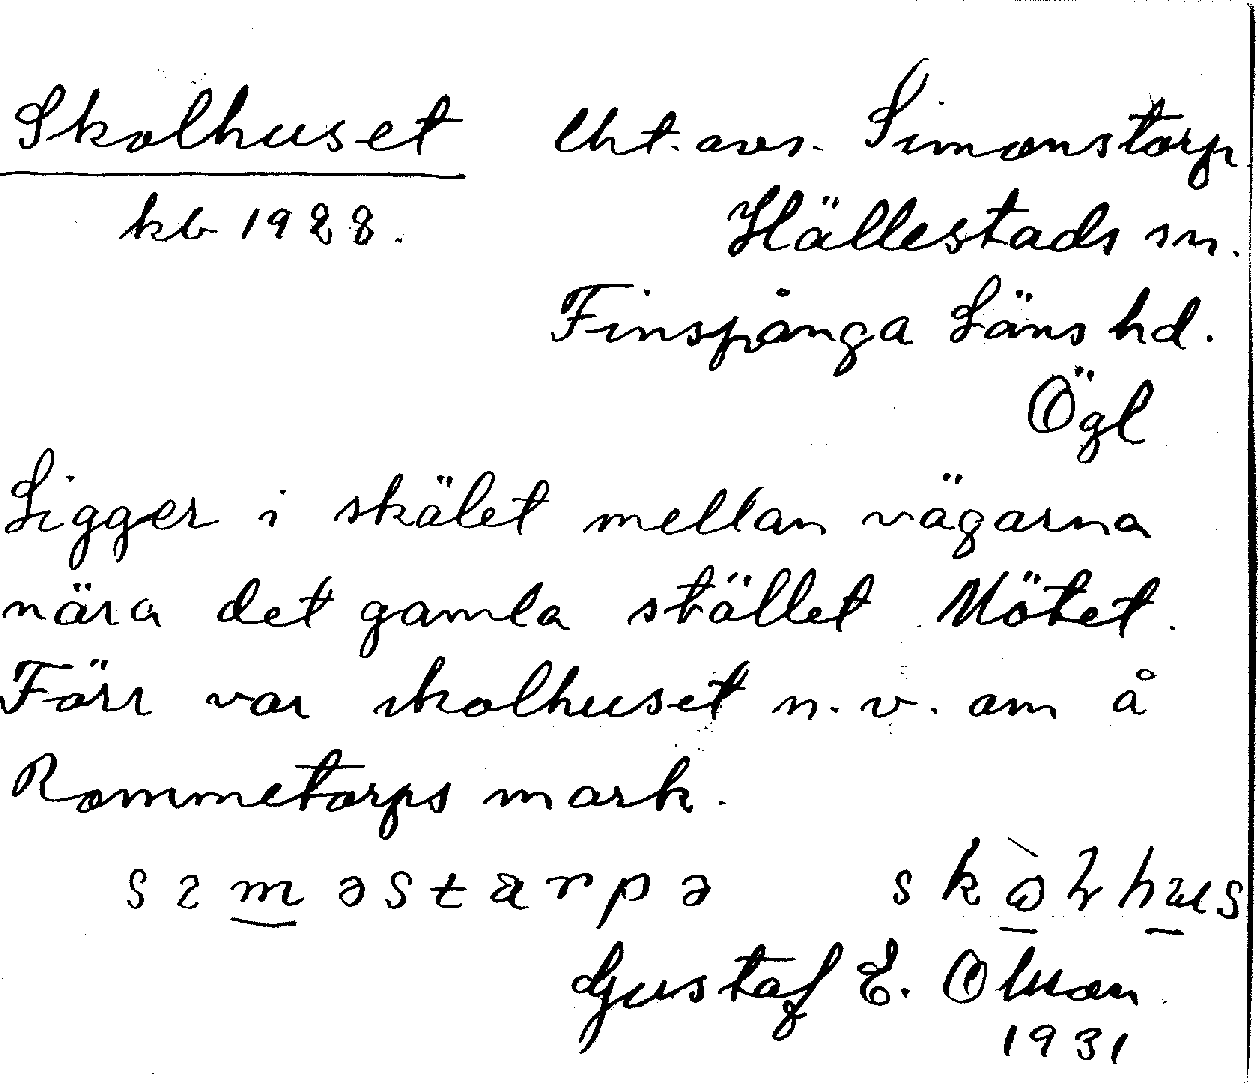 Skolhuset Uht. avs. Simonstorp
kb 1928. Hällestads sn.
Finspånga Läns hd.
Ögl
Ligger i skälet mellan vägarna
nära det gamla stället Mötet.
Förr var skolhuset n.v. om å
Rommetorps mark.
Gustaf E. Olsson
1931